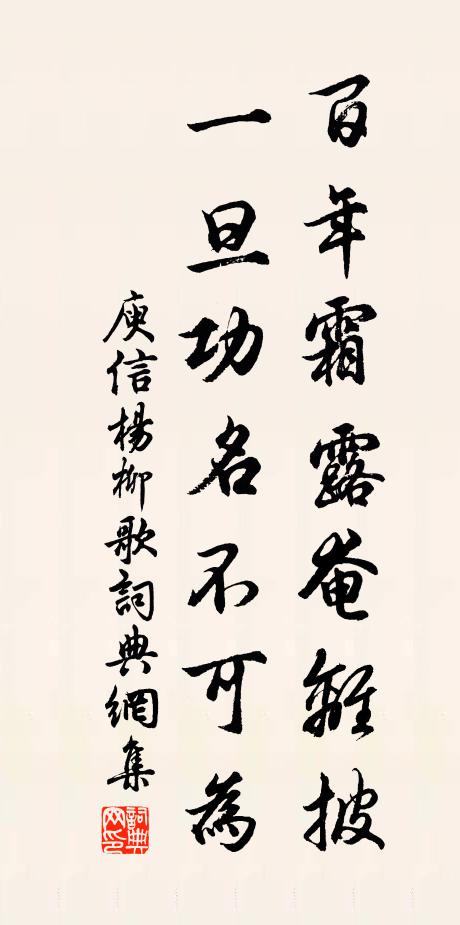 百年霜露奄離披
一旦功名不可為
庾信楊柳歌詞典網集
詞典網印